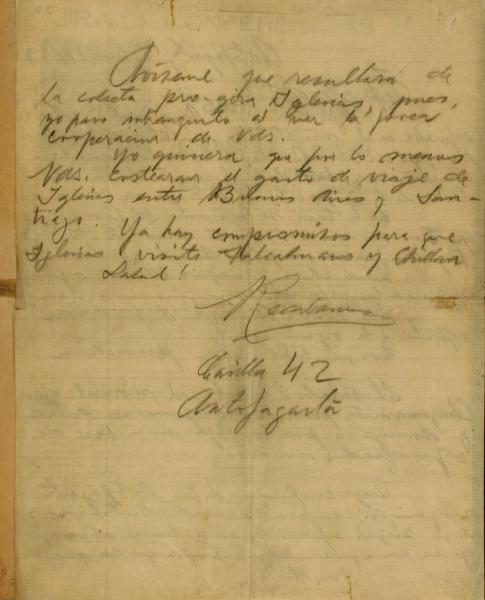 Avísame que resultará de
la colecta pro-gira Iglesias, pues,
yo paso intranquilo al ver la poca
cooperacion de Vds.
Yo quisiera que por lo menos
Vds. costearan el gasto de viaje de
Iglesias entre Buenos Aires y San-
tiago. Ya hay compromisos para que
Iglesias visite Talcahuano y Chillan
Salud!
Recabarren
Casilla 42
Antofagasta